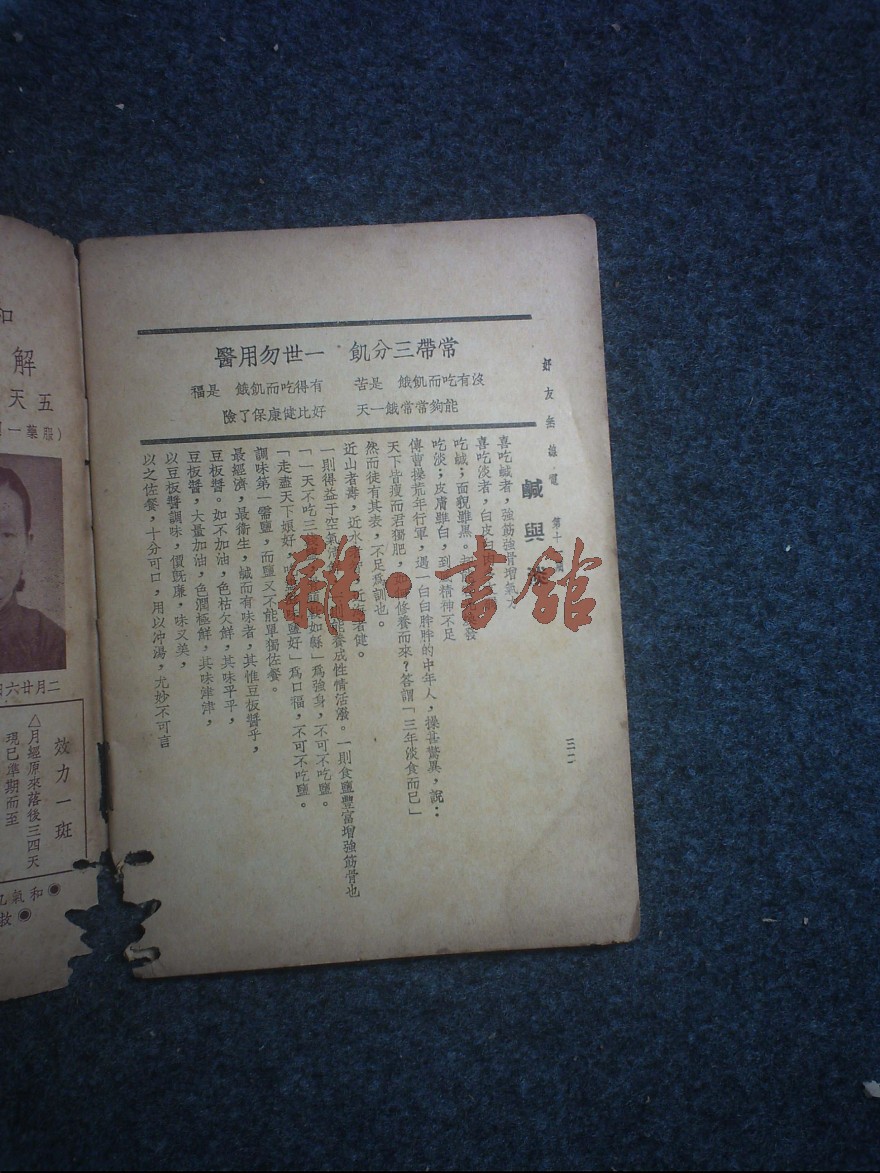 好友無線電 第十
三二
常帶三分飢 一世勿用醫
沒有吃而飢餓 是苦 有得吃而飢餓 是福
能夠常常餓一天 好比健康保了險
鹹與
喜吃鹹者，強筋強骨增氣力
喜吃淡者，白皮白
吃鹹；面貌雖黑。
吃淡；皮膚雖白，到 精神不足
傳曹操荒年行軍，遇一白白胖胖的中年人，操甚驚異，說：
天下皆瘦而君獨肥， 修養而來？答謂「三年淡食而已」
然而徒有其表，不足為訓也。
近山者壽，近水者 近海者健。
一則得益于空氣清 能養成性情活潑。一則食鹽豐富增強筋骨也
「一天不吃三 如縣」為強身，不可不吃鹽。
「走盡天下娘好， 鹽好」為口福，不可不吃鹽。
調味第一需鹽，而鹽又不能單獨佐餐。
最經濟，最衛生，鹹而有味者，其惟豆板醬乎，
豆板醬。如不加油，色枯欠鮮，其味平平，
豆板醬，大量加油，色潤極鮮，其味津津，
以豆板醬調味，價既廉，味又美，
以之佐餐，十分可口，用以沖湯，尤妙不可言
雜·書館
和
解
五天
服藥一
二月廿六
效力一斑
△月經原來落後三四天
現已準期而至
◉和氣
◉故